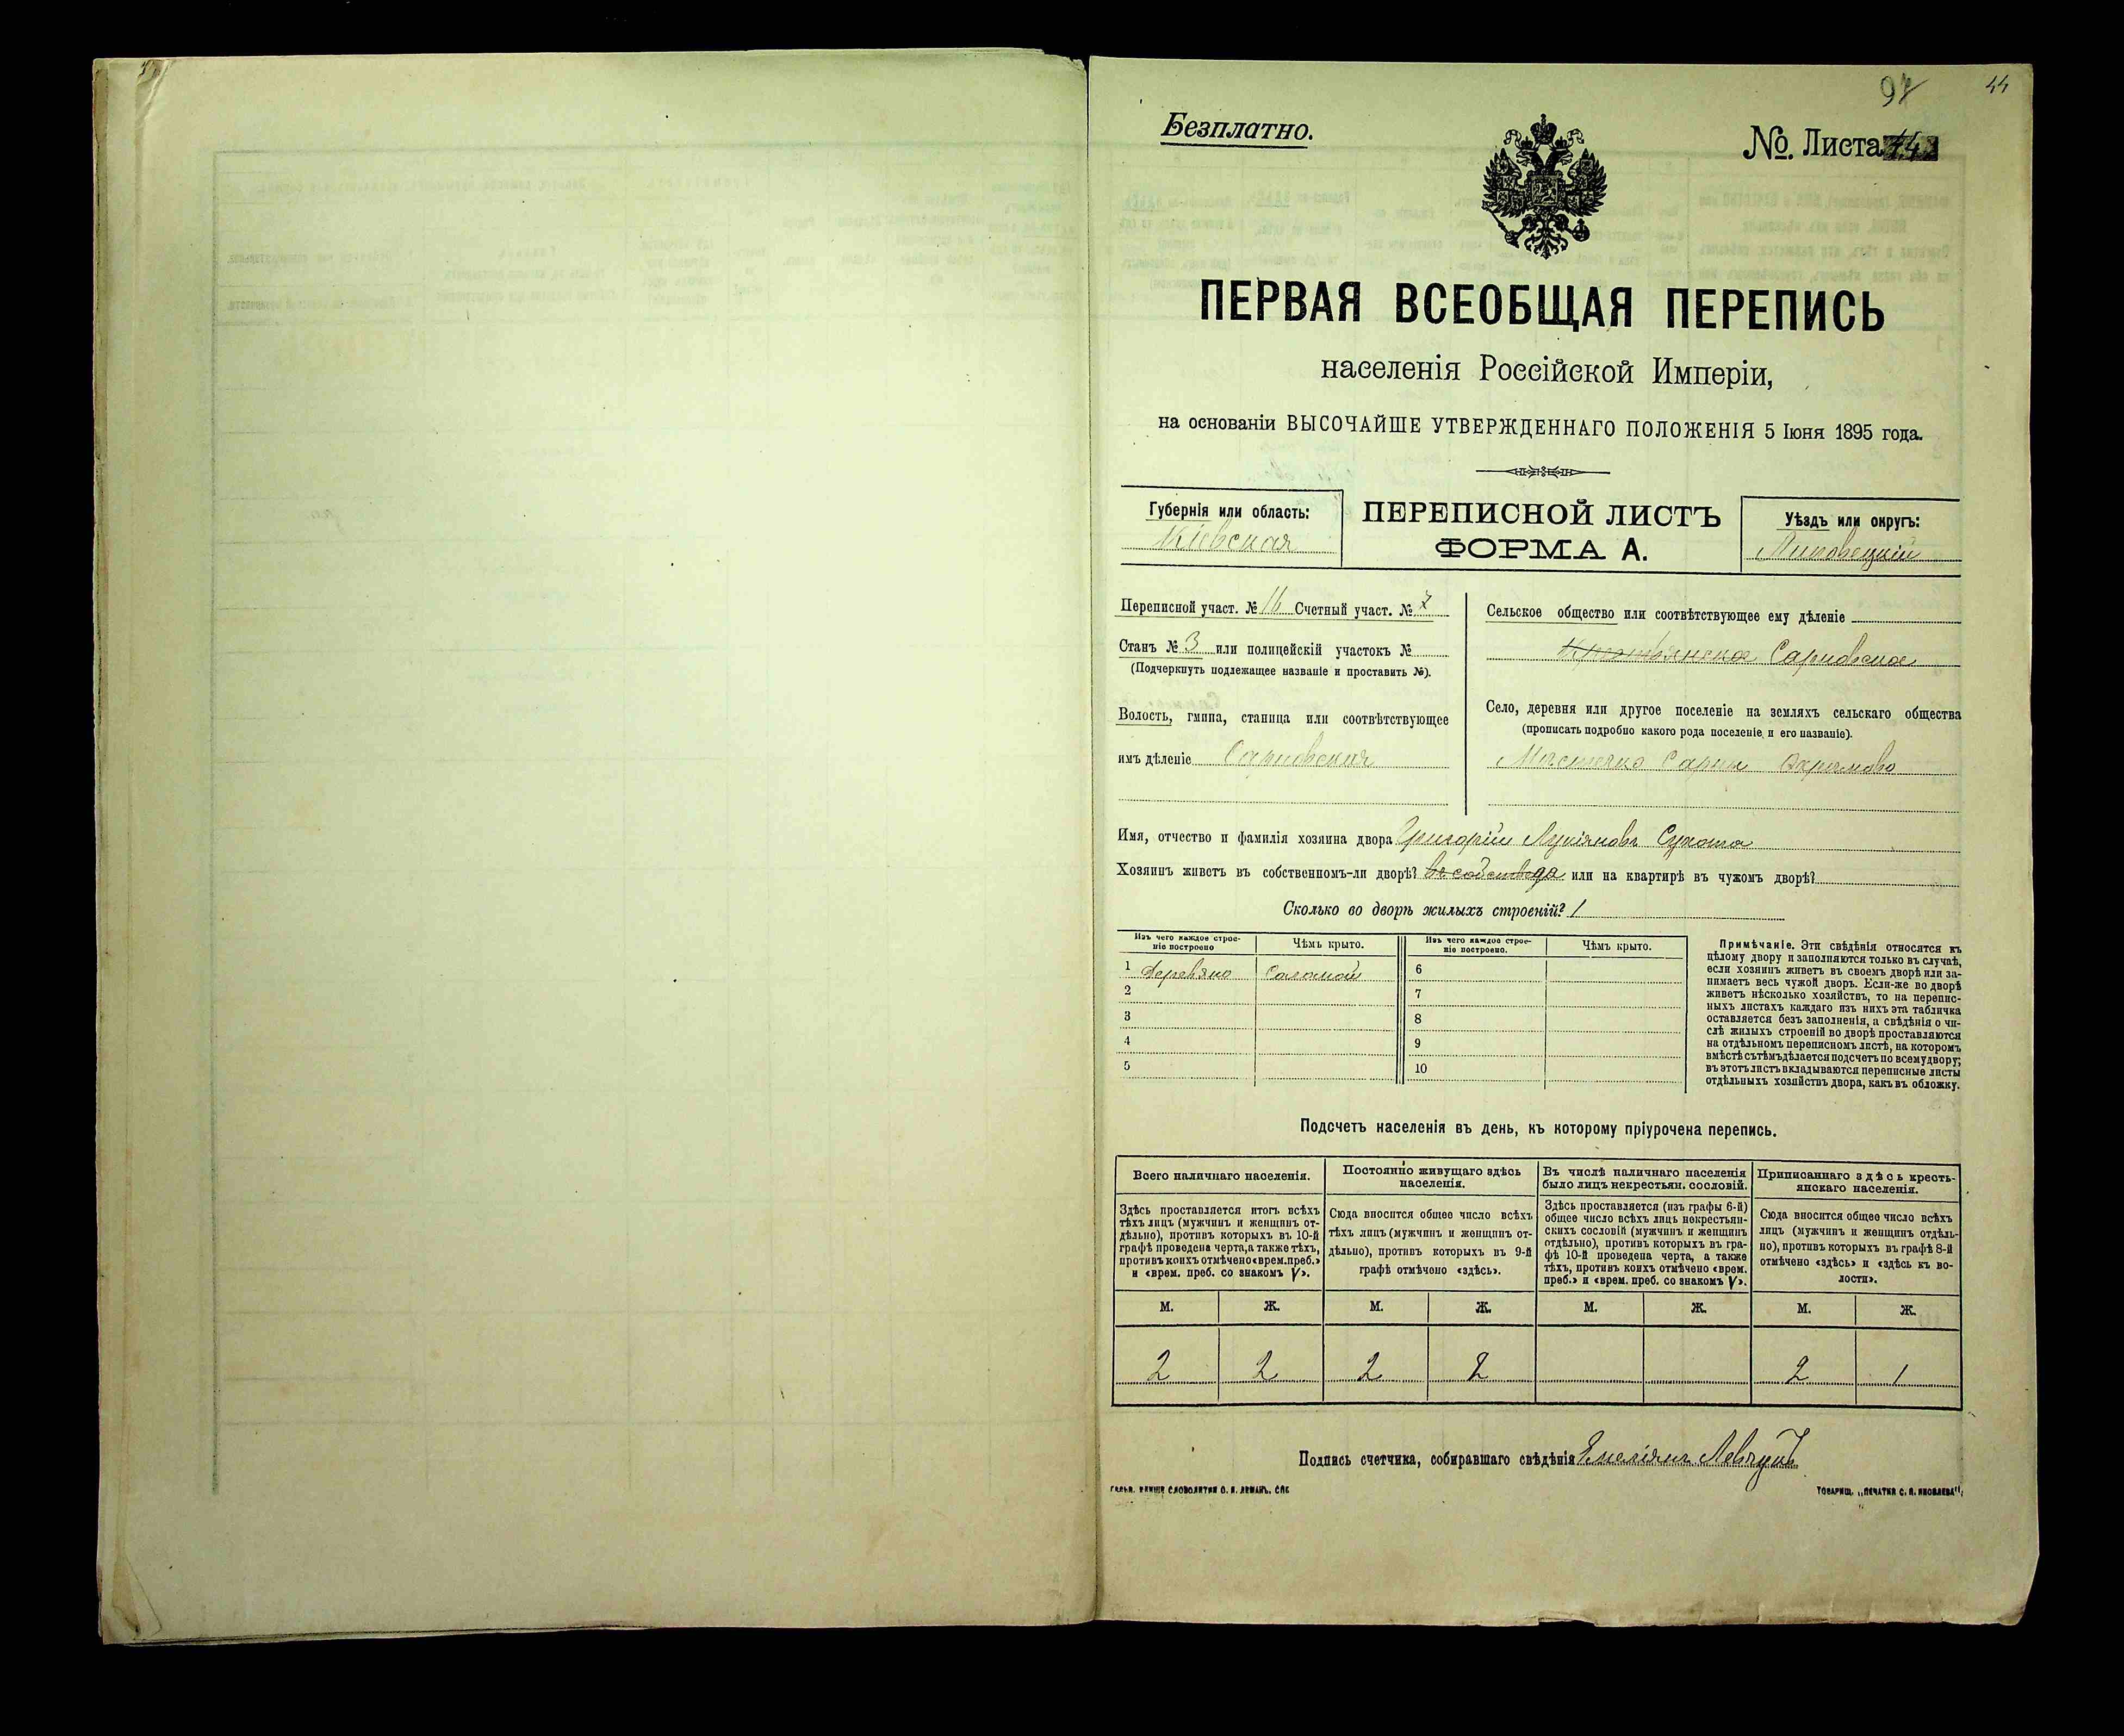 97
44
Безплатно.
№. Листа 44
ПЕРВАЯ ВСЕОБЩАЯ ПЕРЕПИСЬ
населенія Россійской Имперіи,
на основаніи ВЫСОЧАЙШЕ УТВЕРЖДЕННАГО ПОЛОЖЕНІЯ 5 Іюня 1895 года.
Губернія или область:
Кіевская
ПЕРЕПИСНОЙ ЛИСТЪ
ФОРМА А.
Уѣздъ или округъ:
Липовецкій
Переписной участ. № 16 Счетный участ. № 7
Станъ № 3 или полицейскій участокъ №
(Подчеркнуть подлежащее названіе и проставить №).
Волость, гмина, станица или соотвѣтствующее
имъ дѣленіе Сарновская
Сельское общество или соотвѣтствующее ему дѣленіе
Крестьянское Сарновское
Село, деревня или другое поселеніе на земляхъ сельскаго общества
(прописать подробно какого рода поселеніе и его названіе).
Мѣстечко Сарны
Имя, отчество и фамилія хозяина двора Григорій Лукіяновъ
Хозяинъ живетъ въ собственномъ-ли дворѣ? да или на квартирѣ въ чужомъ дворѣ?
Сколько во дворѣ жилыхъ строеній? 1
Изъ чего каждое строе-
ніе построено
Чѣмъ крыто.
Изъ чего каждое строе-
ніе построено.
Чѣмъ крыто.
1 Деревяно Соломой 6
2 7
3 8
4 9
5 10
Примѣчаніе. Эти свѣдѣнія относятся къ
цѣлому двору и заполняются только въ случаѣ,
если хозяинъ живетъ въ своемъ дворѣ или за-
нимаетъ весь чужой дворъ. Если-же во дворѣ
живетъ нѣсколько хозяйствъ, то на перепис-
ныхъ листахъ каждаго изъ нихъ эта табличка
оставляется безъ заполненія, а свѣдѣнія о чи-
слѣ жилыхъ строеній во дворѣ проставляются
на отдѣльномъ переписномъ листѣ, на которомъ
вмѣстѣ съ тѣмъ дѣлается подсчетъ по всему двору;
въ этотъ листъ вкладываются переписные листы
отдѣльныхъ хозяйствъ двора, какъ въ обложку.
Подсчетъ населенія въ день, къ которому пріурочена перепись.
Всего наличнаго населенія.
Здѣсь проставляется итогъ всѣхъ
тѣхъ лицъ (мужчинъ и женщинъ от-
дѣльно), противъ которыхъ въ 10-й
графѣ проведена черта, а также тѣхъ,
противъ коихъ отмѣчено «врем. преб.»
и «врем. преб. со знакомъ V».
Постоянно живущаго здѣсь
населенія.
Сюда вносится общее число всѣхъ
тѣхъ лицъ (мужчинъ и женщинъ от-
дѣльно), противъ которыхъ въ 9-й
графѣ отмѣчено «здѣсь».
Въ числѣ наличнаго населенія
было лицъ некрестьян. сословій.
Здѣсь проставляется (изъ графы 6-й)
общее число всѣхъ лицъ некрестьян-
скихъ сословій (мужчинъ и женщинъ
отдѣльно), противъ которыхъ въ гра-
фѣ 10-й проведена черта, а также
тѣхъ, противъ коихъ отмѣчено «врем.
преб.» и «врем. преб. со знакомъ V».
Приписаннаго здѣсь кресть-
янскаго населенія.
Сюда вносится общее число всѣхъ
лицъ (мужчинъ и женщинъ отдѣль-
но), противъ которыхъ въ графѣ 8-й
отмѣчено «здѣсь» и «здѣсь къ во-
лости».
М. Ж. М. Ж. М. Ж. М. Ж.
2 2 2 2 2 1
Подпись счетчика, собиравшаго свѣдѣнія Емеліянъ Левчукъ
ГАЛЬВ. КЛИШЕ СЛОВОЛИТНИ О. И. ЛЕМАНЪ. СПБ
ТОВАРИЩ. „ПЕЧАТНЯ С. П. ЯКОВЛЕВА“